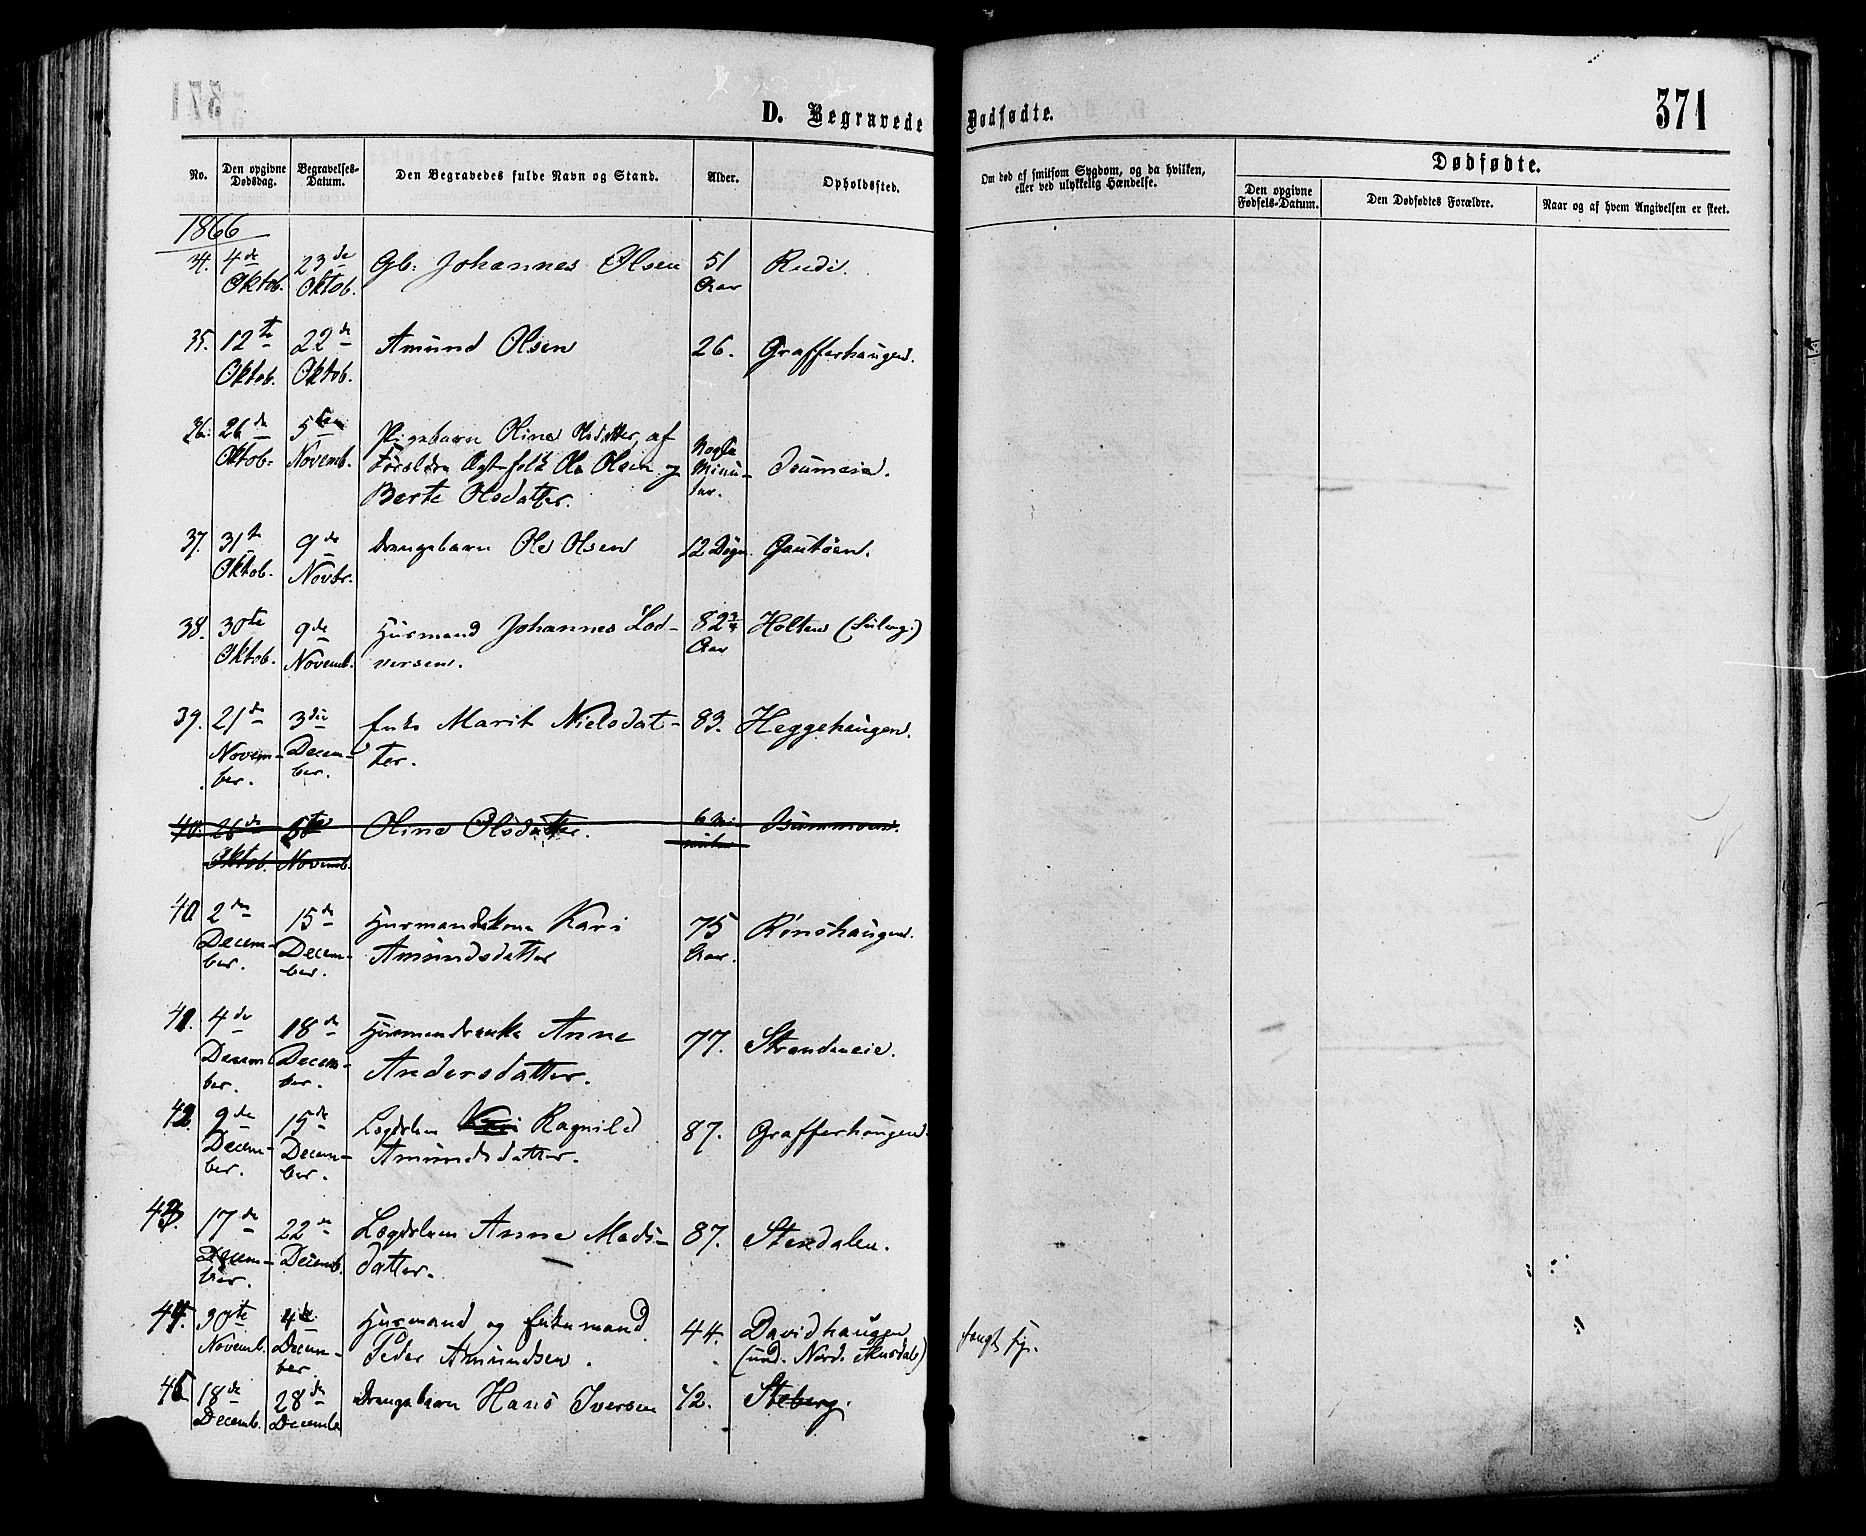 D. Begravede
Dødfødte.
371
No.
Den opgivne Dødsdag.
Begravelses-Datum.
Den Begravedes fulde Navn og Stand.
Alder.
Opholdssted.
Om død af smitsom Sygdom, og da hvilken,
eller ved ulykkelig Hændelse.
Dødfødte.
Den opgivne Fødsels-Datum.
Den Dødfødtes Forældre.
Naar og af hvem Angivelsen er skeet.
1866
34. 4de Oktob. 23de Oktob. Gb. Johannes Olsen 51 Aar Rudi.
35. 12te Oktob. 22de Oktob. Amund Olsen 26. Grafferhaugen.
36. 26de Oktob. 5te Novemb. Pigebarn Oline Olsdatter, af
Forældre Ole Olsen og
Berte Olsdatter. Nogle Minu-ter.
37. 31te Oktob. 9de Novbr. Drengebarn Ole Olsen 12 Døgn. Gautøen.
38. 30te Oktob. 9de Novemb. Huusmand Johannes Lod-
versen. 82 3/4 Aar Holten
39. 21de Novem-ber. 3die Decem-ber. Enke Marit Nielsdat-
ter. 83. Heggehaugen.
40. 26de Oktob. 5te Novemb. Oline Olsdatter. 6 Mi-nuter
40 2den Decem-ber. 15de Decem-ber. Huusmandskone Kari
Amundsdatter 75 Aar. Rønshaugen.
41. 4de Decem-ber. 18de Decem-ber. Huusmandsenke Anne
Andersdatter. 77. Strandeeie.
42. 9de Decem-ber. 15de Decem-ber. Lægdslem Kari Ragnild
Amundsdatter. 87. Grafferhaugen.
43. 17de Decem-ber. 22de Decemb. Lægdslem Anne Mads-
datter. 87. Stendalen.
44. 30te Novemb. 4de Decem-ber. Huusmand og Enkemand
Peder Amundsen. 44. Davidhaugen
45. 18de Decemb. 28de Decembr Drengebarn Hans Iversen 12. Steberg.